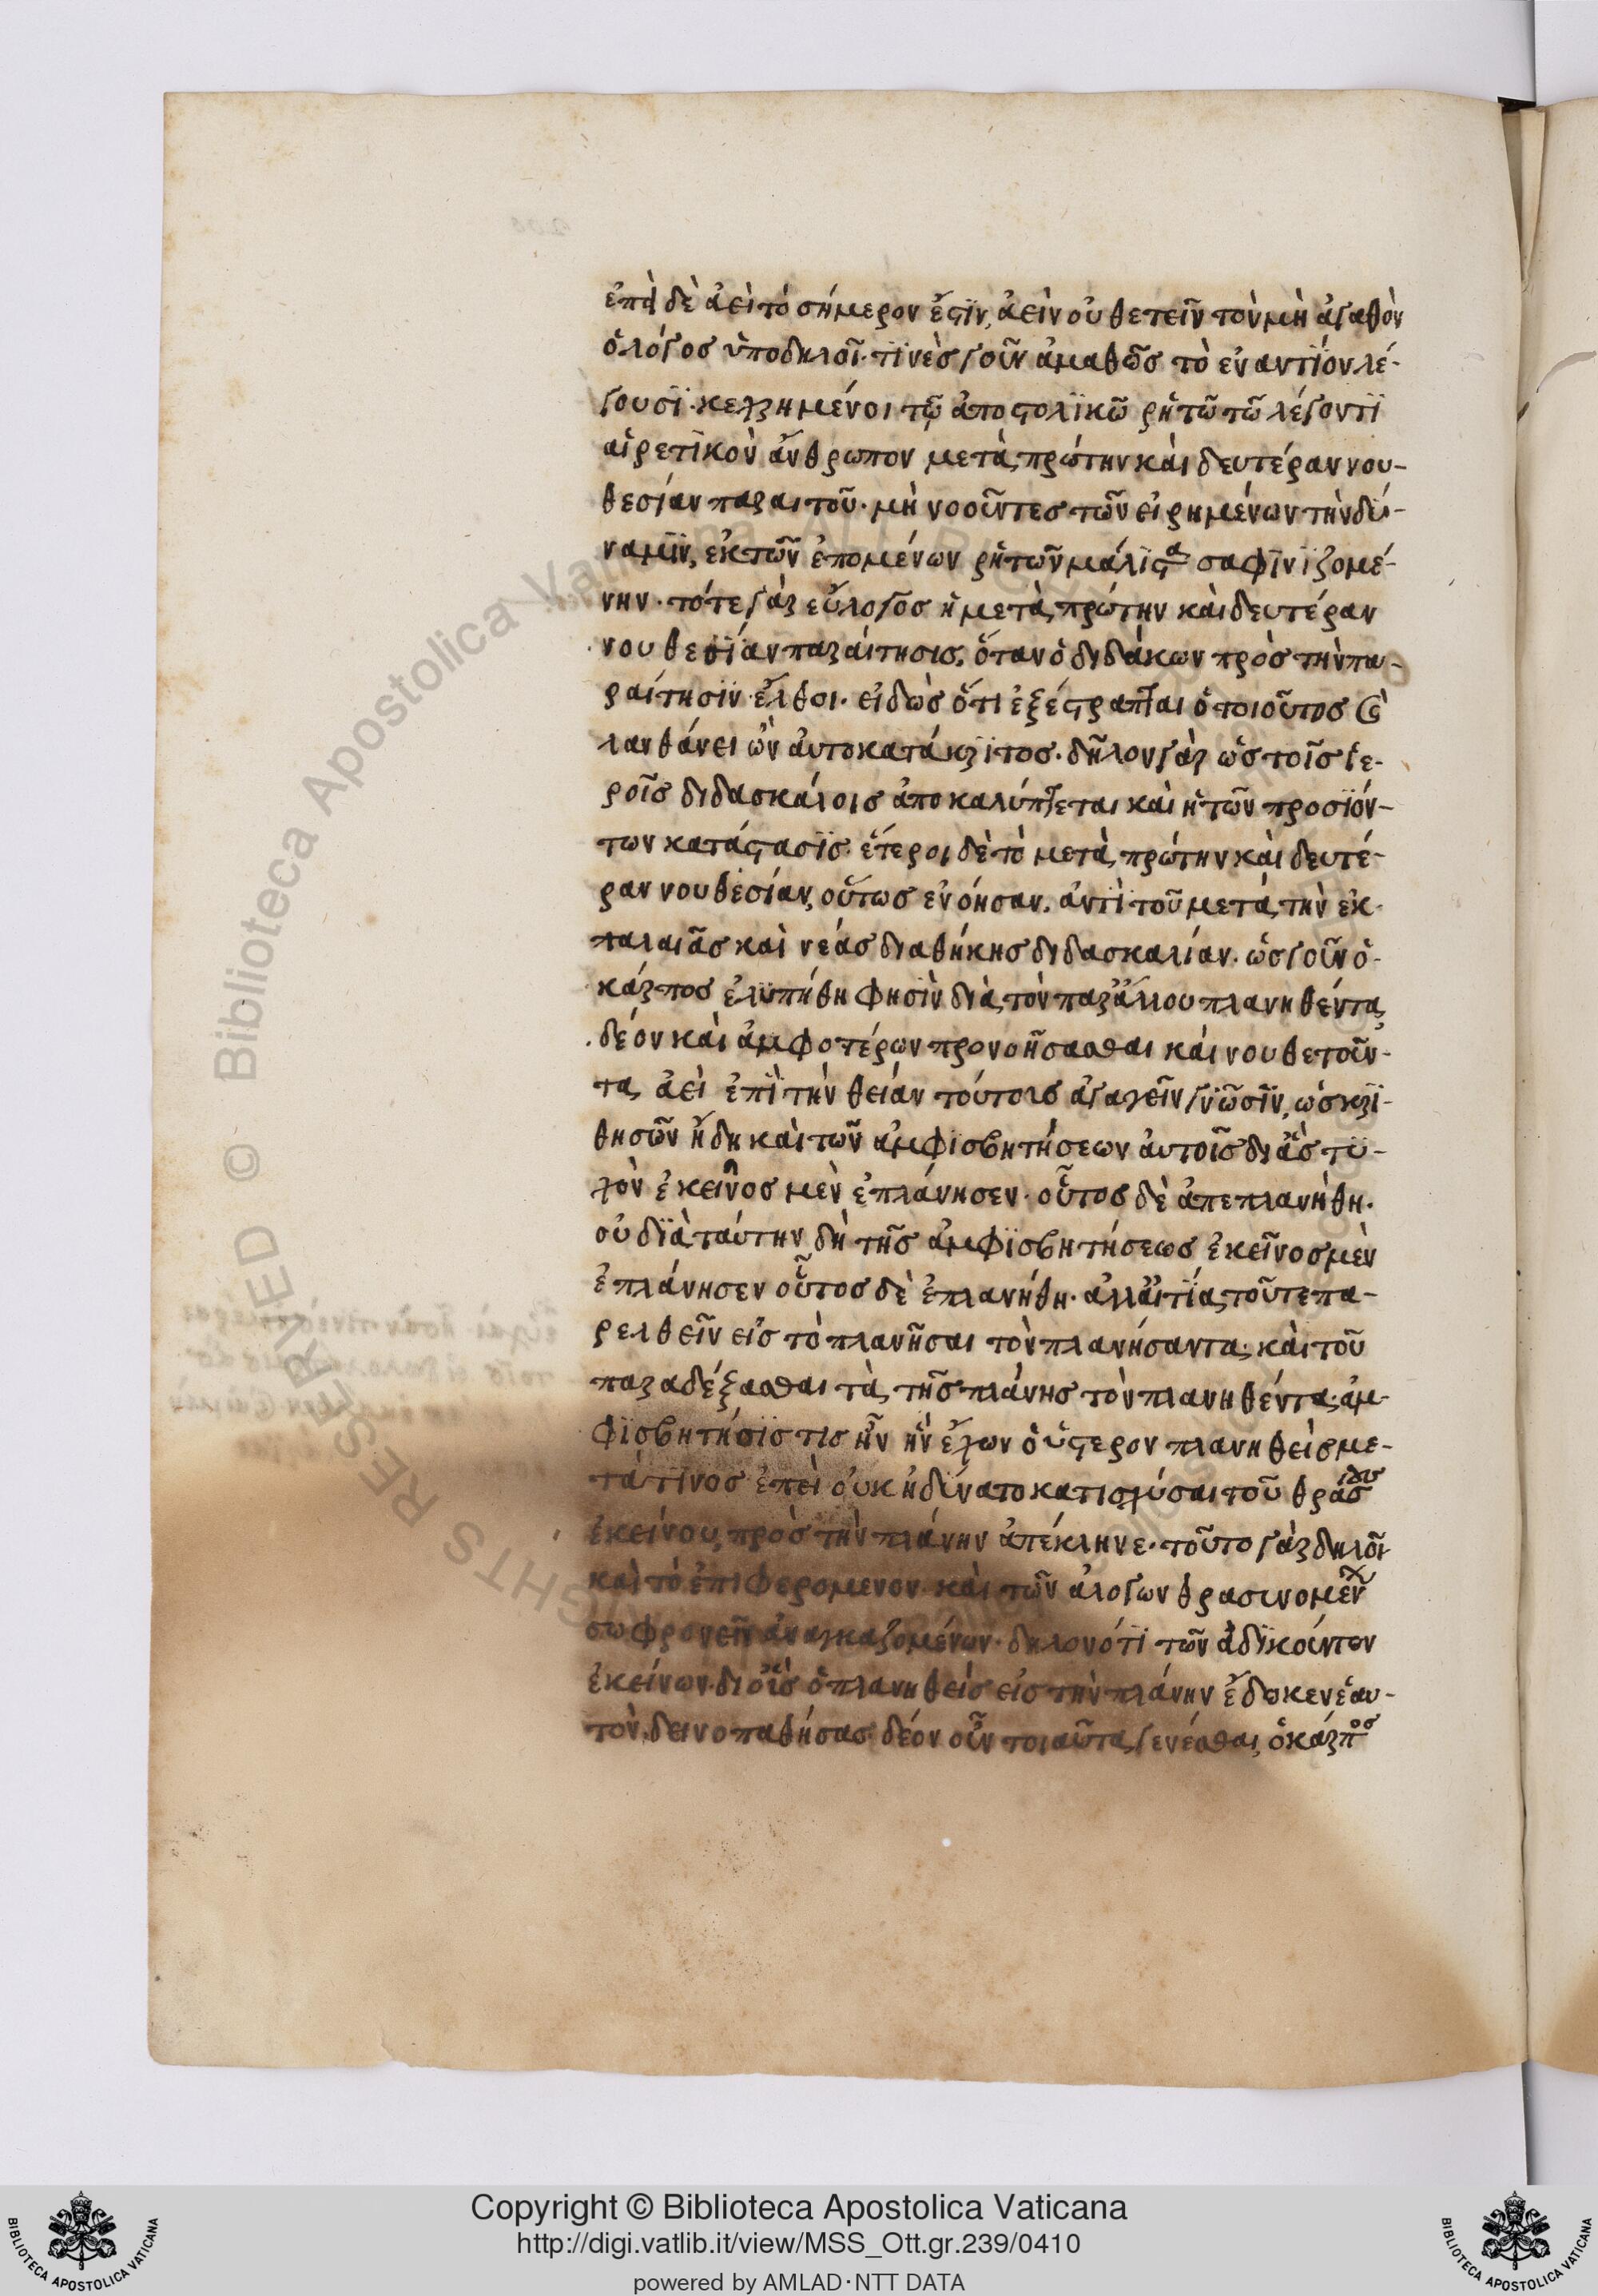 ἐπεὶ δὲ ἀεὶ τὸ σήμερον ἔστϊν, ἀεὶ νουθετεῖν τὸν μὴ ἀγαθὸν
ὁ λόγος ὑποδηλοῖ· τϊνὲς γοῦν ἀμαθῶς τὸ ἐναντΐον λέ-
γουσϊ· κεχρημένοι τῷ ἀποστολϊκῶ ῥητῶ τῶ λέγοντϊ
αἱρετϊκὸν ἄνθρωπον μετὰ πρώτην καὶ δευτέραν νου-
θεσίαν παραιτοῦ· μὴ νοοῦντες τῶν εἰρημένων τὴν δύ-
ναμϊν, ἐκ τῶν ἑπομένων ῥητῶν μάλϊστα σαφϊνϊζομέ-
νην· τότε γὰρ εὔλογος ἡ μετὰ πρώτην καὶ δευτέραν
νουθεσΐαν παραίτησις, ὅταν ὁ διδάκων πρὸς τὴν πα-
ραίτησϊν ἔλθοι· εἰδὼς ὅτι ἐξέστραπται ὁ τοιοῦτος καὶ
λανθάνει ὢν αὐτοκατάκρϊτος· δῆλον γὰρ ὡς τοῖς ἱε-
ροῖς διδασκάλοις ἀποκαλύπτεται καὶ ἡ τῶν προσϊόν-
των κατάστασϊς· ἕτεροι δὲ τὸ μετὰ πρώτην καὶ δευτέ-
ραν νουθεσίαν, οὕτως ἐνόησαν· ἀντὶ τοῦ μετὰ τὴν ἐκ
παλαιᾶς καὶ νέας διαθήκης διδασκαλίαν· ὡς γοῦν ὁ
κάρπος ἐλϋπήθη φησὶν διὰ τὸν παρἄλλου πλανηθέντα,
δέον καὶ ἀμφοτέρων προνοῆσασθαι καὶ νουθετοῦν-
τα ἀεὶ ἐπῒ τὴν θείαν τούτοις ἀγαγεῖν γνῶσϊν, ὡς κρϊ-
θησῶν ἤδη καὶ τῶν ἀμφϊσβητήσεων αὐτοῖς διἃς τϋ-
χὸν ἐκεῖνος μὲν ἐπλάνησεν· οὗτος δὲ ἀπεπλανήθη·
οὐ δϊὰ ταύτην δὴ τῆς ἀμφϊσβητήσεως ἐκεῖνος μὲν
ἐπλάνησεν οὗτος δὲ ἐπλανήθη· ἀλλἀιτΐα τοῦτε πα-
ρελθεῖν εἰς τὸ πλανῆσαι τὸν πλανήσαντα· καὶ τοῦ
παραδέξασθαι τὰ τῆς πλάνης τὸν πλανηθέντα· ἀμ-
φϊσβητήσϊς τις ἦν ἣν ἔχων ὁ ὕστερον πλανηθεὶς με-
τά τϊνος ἐπεὶ οὐκ ἠδύνατο κατισχύσαι τοῦ θράσους
ἐκείνου, πρὸς τὴν πλάνην ἀπέκληνε· τοῦτο γὰρ δηλοῖ
καὶ τὸ ἐπιφερομενον· καὶ τῶν ἀλογων θρασυνομένων
σωφρονεῖν ἀναγκαζομένων· δηλονότϊ τῶν ἀδϊκούντων
ἐκείνων· διοἷς ὁ πλανηθεὶς εἰς τὴν πλάνην ἔδωκεν ἑαυ-
τὸν, δεινοπαθήσας· δέον οὖν τοιαῦτα γενέσθαι, ὁ κάρπος
Copyright © Biblioteca Apostolica Vaticana
http://digi.vatlib.it/view/MSS_Ott.gr.239/0410
powered by AMLAD·NTT DATA